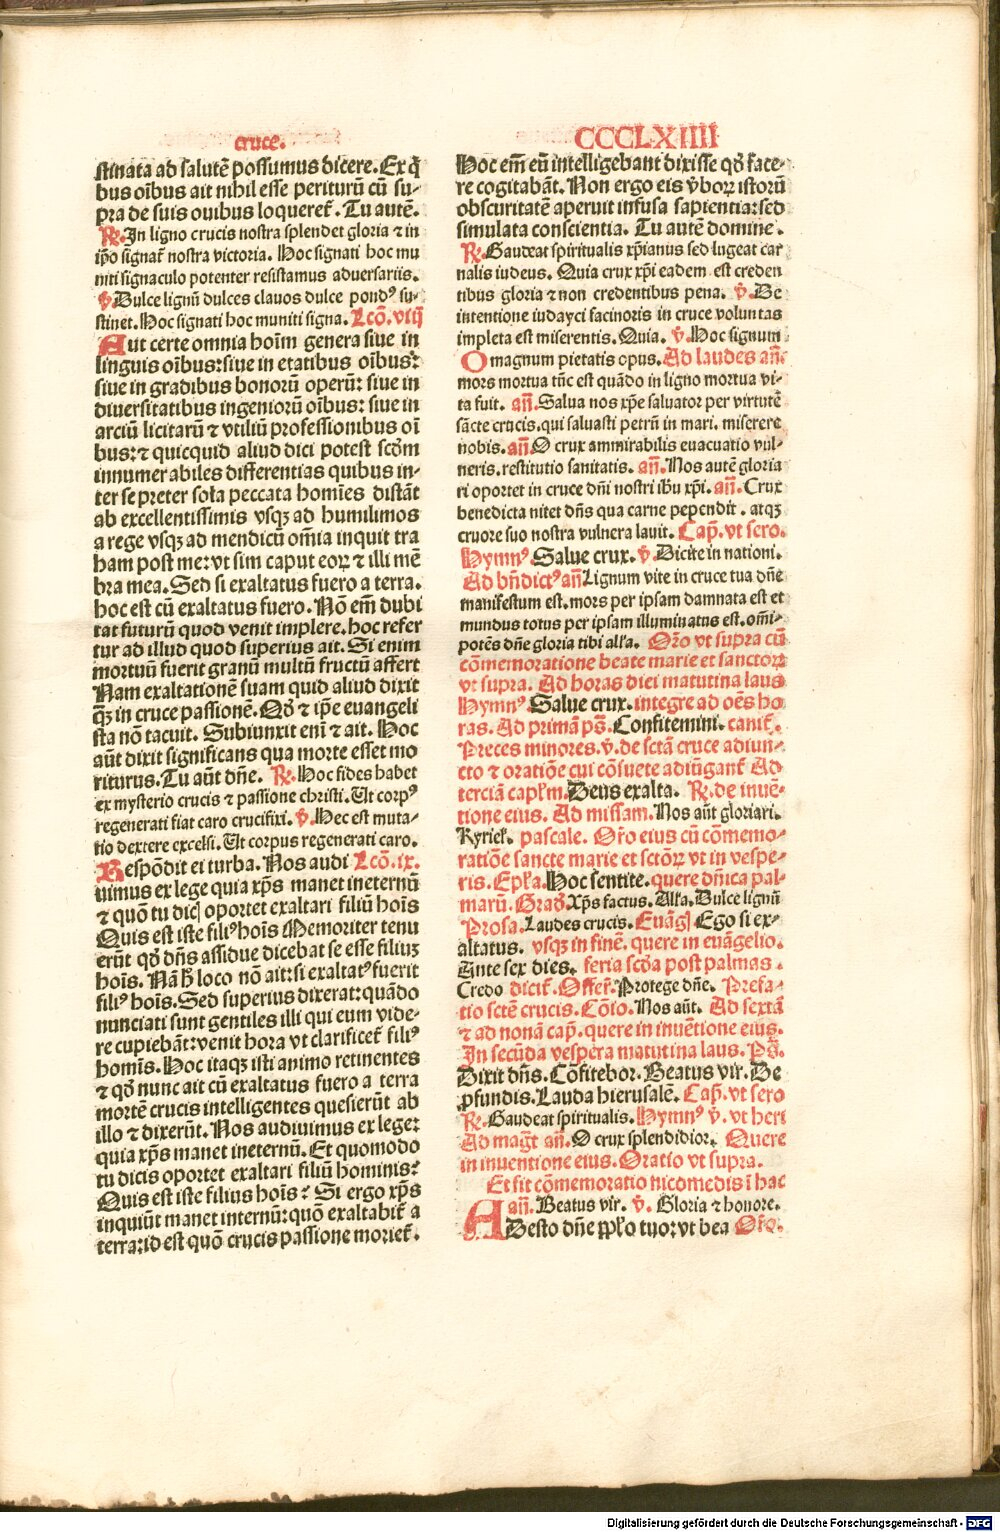 cruce.
stinata ad salutē possumus dicere. Ex q̄
bus oībus ait nihil esse periturū cū su-
pra de suis ouibus loqueret᷑. Tu autē.
℟. In ligno crucis nostra splendet gloria ⁊ in
ip̄o signat᷑ nostra victoria. Hoc signati hoc mu
niti signaculo potenter resistamus aduersariis.
℣. Dulce lignū dulces clauos dulce pondꝰ su-
stinet. Hoc signati hoc muniti signa. Lcō. viij
Aut certe omnia hoīm genera siue in
linguis oībus: siue in etatibus oībus:
siue in gradibus bonorū operū: siue in
diuersitatibus ingeniorū oībus: siue in
arciū licitarū ⁊ vtiliū professionibus oī
bus: ⁊ quicquid aliud dici potest scd̄m
innumerabiles differentias quibus in-
ter se preter sola peccata homīes distāt
ab excellentissimis vsqꝫ ad humilimos
a rege vsqꝫ ad mendicū om̄ia inquit tra
ham post me: vt sim caput eoꝝ ⁊ illi mē
bra mea. Sed si exaltatus fuero a terra.
hoc est cū exaltatus fuero. Nō em̄ dubi
tat futurū quod venit implere. hoc refer
tur ad illud quod superius ait. Si enim
mortuū fuerit granū multū fructū affert
Nam exaltationē suam quid aliud dixit
q̄ꝫ in cruce passionē. Qd̄ ⁊ ip̄e euangeli
sta nō tacuit. Subiunxit enī ⁊ ait. Hoc
aūt dixit significans qua morte esset mo
riturus. Tu aūt dn̄e. ℟. Hoc fides habet
ex mysterio crucis ⁊ passione christi. Ut corpꝰ
regenerati fiat caro crucifixi. ℣. Hec est muta-
tio dextere excelsi. Ut corpus regenerati caro.
Respōdit ei turba. Nos audi Lcō. ix.
uimus ex lege quia xp̄s manet ineternū
⁊ quō tu dicꝭ oportet exaltari filiū hoīs
Quis est iste filiꝰ hoīs Memoriter tenu
erūt qd̄ dn̄s assidue dicebat se esse filiuꝫ
hoīs. Nā h̄ loco nō ait: si exaltatꝰ fuerit
filiꝰ hoīs. Sed superius dixerat: quādo
nunciati sunt gentiles illi qui eum vide-
re cupiebāt: venit hora vt clarificet᷑ filiꝰ
homīs. Hoc itaqꝫ isti animo retinentes
⁊ qd̄ nunc ait cū exaltatus fuero a terra
mortē crucis intelligentes quesierūt ab
illo ⁊ dixerūt. Nos audiuimus ex lege:
quia xp̄s manet ineternū. Et quomodo
tu dicis oportet exaltari filiū hominis?
Quis est iste filius hoīs? Si ergo xp̄s
inquiūt manet internū: quō exaltabit᷑ a
terra: id est quō crucis passione moriet᷑.
CCCLXIIII
Hoc em̄ eū intelligebant dixisse qd̄ face-
re cogitabāt. Non ergo eis v̄boꝝ istorū
obscuritatē aperuit infusa sapientia: sed
simulata conscientia. Tu autē domine.
℟. Gaudeat spiritualis xp̄ianus sed lugeat car
nalis iudeus. Quia crux xp̄i eadem est creden
tibus gloria ⁊ non credentibus pena. ℣. De
intentione iudayci facinoris in cruce voluntas
impleta est miserentis. Quia. ℣. Hoc signum
O magnum pietatis opus. Ad laudes an̄.
mors mortua tūc est quādo in ligno mortua vi-
ta fuit. an̄. Salua nos xp̄e saluator per virtutē
sācte crucis. qui saluasti petrū in mari. miserere
nobis. an̄. O crux ammirabilis euacuatio vul-
neris. restitutio sanitatis. an̄. Nos autē gloria
ri oportet in cruce dn̄i nostri ih̄u xp̄i. an̄. Crux
benedicta nitet dn̄s qua carne pependit. atqꝫ
cruore suo nostra vulnera lauit. Cap̄. vt sero.
Hymnꝰ Salue crux. ℣. Dicite in nationi.
Ad bn̄dictꝰ an̄ Lignum vite in cruce tua dn̄e
manifestum est. mors per ipsam damnata est et
mundus totus per ipsam illuminatus est. om̄i-
potēs dn̄e gloria tibi all'a. Or̄o vt supra cū
cōmemoratione beate marie et sanctoꝝ
vt supra. Ad horas diei matutina laus
Hymnꝰ Salue crux. integre ad oēs ho
ras. Ad primā ps̄. Confitemini. canit᷑.
Preces minores. ℣. de sctā cruce adiun-
cto ⁊ oratiōe cui cōsuete adiūgant᷑ Ad
terciā capl̄m. Deus exalta. ℟. de inuē-
tione eius. Ad missam. Nos aūt gloriari.
Kyriel'. pascale. Or̄o eius cū cōmemo-
ratiōe sancte marie et sctōꝝ vt in vespe-
ris. Ep̄la. Hoc sentite. quere dn̄ica pal-
marū. Grad̄. Xp̄s factus. All'a. Dulce lignū
Prosa. Laudes crucis. Euāgꝭ Ego si ex-
altatus. vsqꝫ in finē. quere in euāgelio.
Ante sex dies. feria scd̄a post palmas.
Credo dicit᷑. Offer̄. Protege dn̄e. Prefa-
tio sctē crucis. Cōio. Nos aūt. Ad sextā
⁊ ad nonā cap̄. quere in inuētione eius.
In secūda vespera matutina laus. Ps̄.
Dixit dn̄s. Cōfitebor. Beatus vir. De
ꝓfundis. Lauda hierusalē. Cap̄. vt sero
℟. Gaudeat spiritualis. Hymnꝰ ℣. vt heri
Ad maḡt an̄. O crux splendidior. Quere
in inuentione eius. Oratio vt supra.
Et fit cōmemoratio nicomedis ī hac
an̄. Beatus vir. ℣. Gloria ⁊ honore.
Adesto dn̄e pp̄lo tuo: vt bea Or̄o.
Digitalisierung gefördert durch die Deutsche Forschungsgemeinschaft - DFG